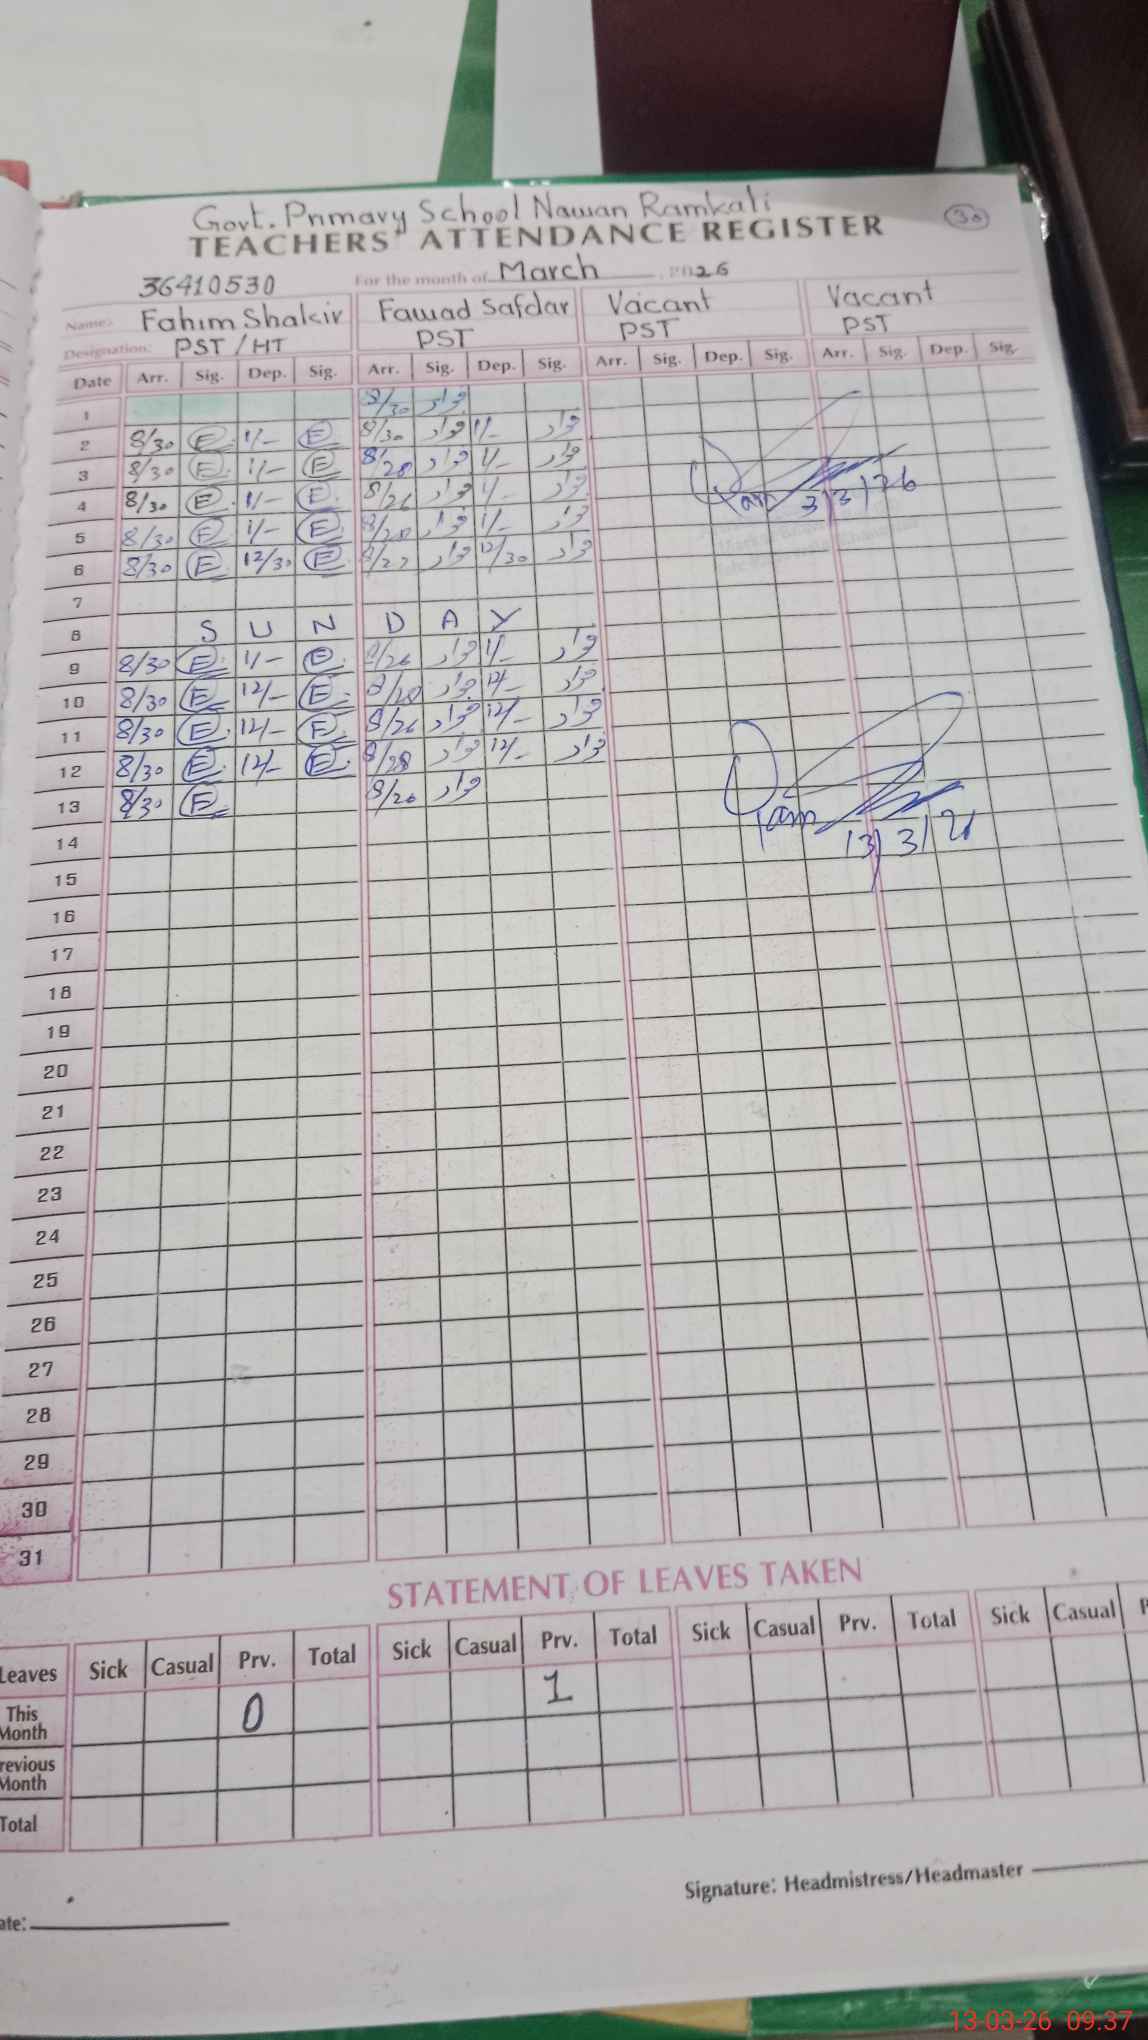 Govt. Primary School Nawan Ramkali
30
TEACHERS' ATTENDANCE REGISTER
36410530 For the month of March 2026
Name: Fahim Shakir Fawad Safdar Vacant Vacant
Designation: PST / HT PST PST PST
Date Arr. Sig. Dep. Sig. Arr. Sig. Dep. Sig. Arr. Sig. Dep. Sig. Arr. Sig. Dep. Sig.
1 8/30 فواد
2 8/30 E 1/- E 8/30 فواد 1/- فواد
3 8/30 E 1/- E 8/28 فواد 1/- فواد
4 8/30 E 1/- E 8/26 فواد 1/- فواد
3/3/26
5 8/30 E 1/- E 8/28 فواد 1/- فواد
6 8/30 E 12/30 E 8/27 فواد 12/30 فواد
7
8 S U N D A Y
9 8/30 E 1/- E 8/26 فواد 1/- فواد
10 8/30 E 12/- E 8/28 فواد 12/- فواد
11 8/30 E 12/- E 8/26 فواد 12/- فواد
12 8/30 E 12/- E 8/28 فواد 12/- فواد
13 8/30 E 8/26 فواد
13/3/26
14
15
16
17
18
19
20
21
22
23
24
25
26
27
28
29
30
31
STATEMENT OF LEAVES TAKEN
Leaves Sick Casual Prv. Total Sick Casual Prv. Total Sick Casual Prv. Total Sick Casual P
This Month 0 1
revious Month
Total
Signature: Headmistress/Headmaster
ate:
13-03-26 09:37